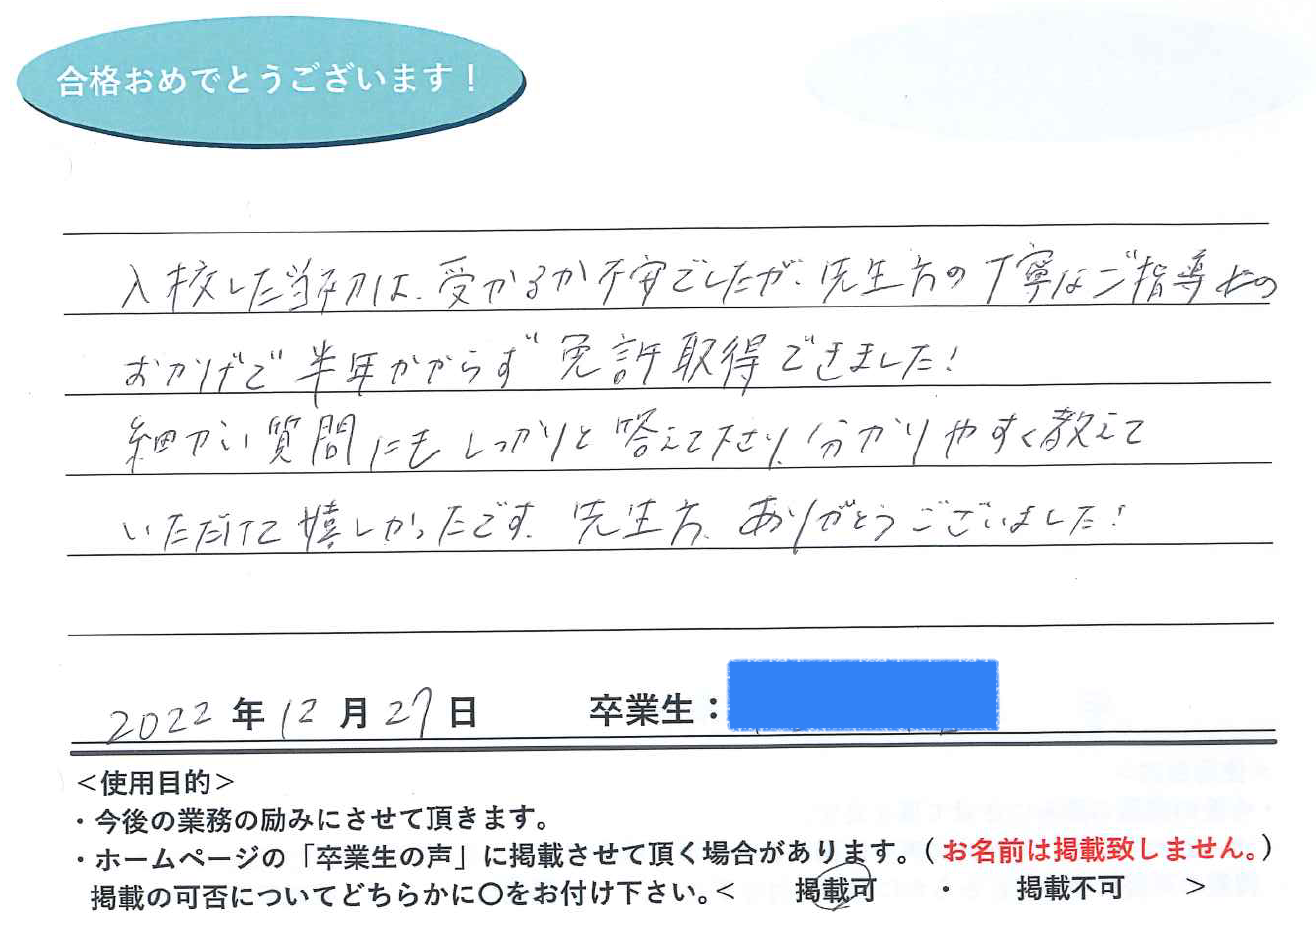 合格おめでとうございます！
入校した当初は、受かるか不安でしたが、先生方の丁寧なご指導の
おかげで半年かからず免許取得できました！
細かい質問にもしっかりと答えて下さり、分かりやすく教えて
いただけて嬉しかったです。先生方、ありがとうございました！
2022年12月27日 卒業生：
＜使用目的＞
・今後の業務の励みにさせて頂きます。
・ホームページの「卒業生の声」に掲載させて頂く場合があります。（お名前は掲載致しません。）
掲載の可否についてどちらかに〇をお付け下さい。＜ 掲載可 ・ 掲載不可 ＞